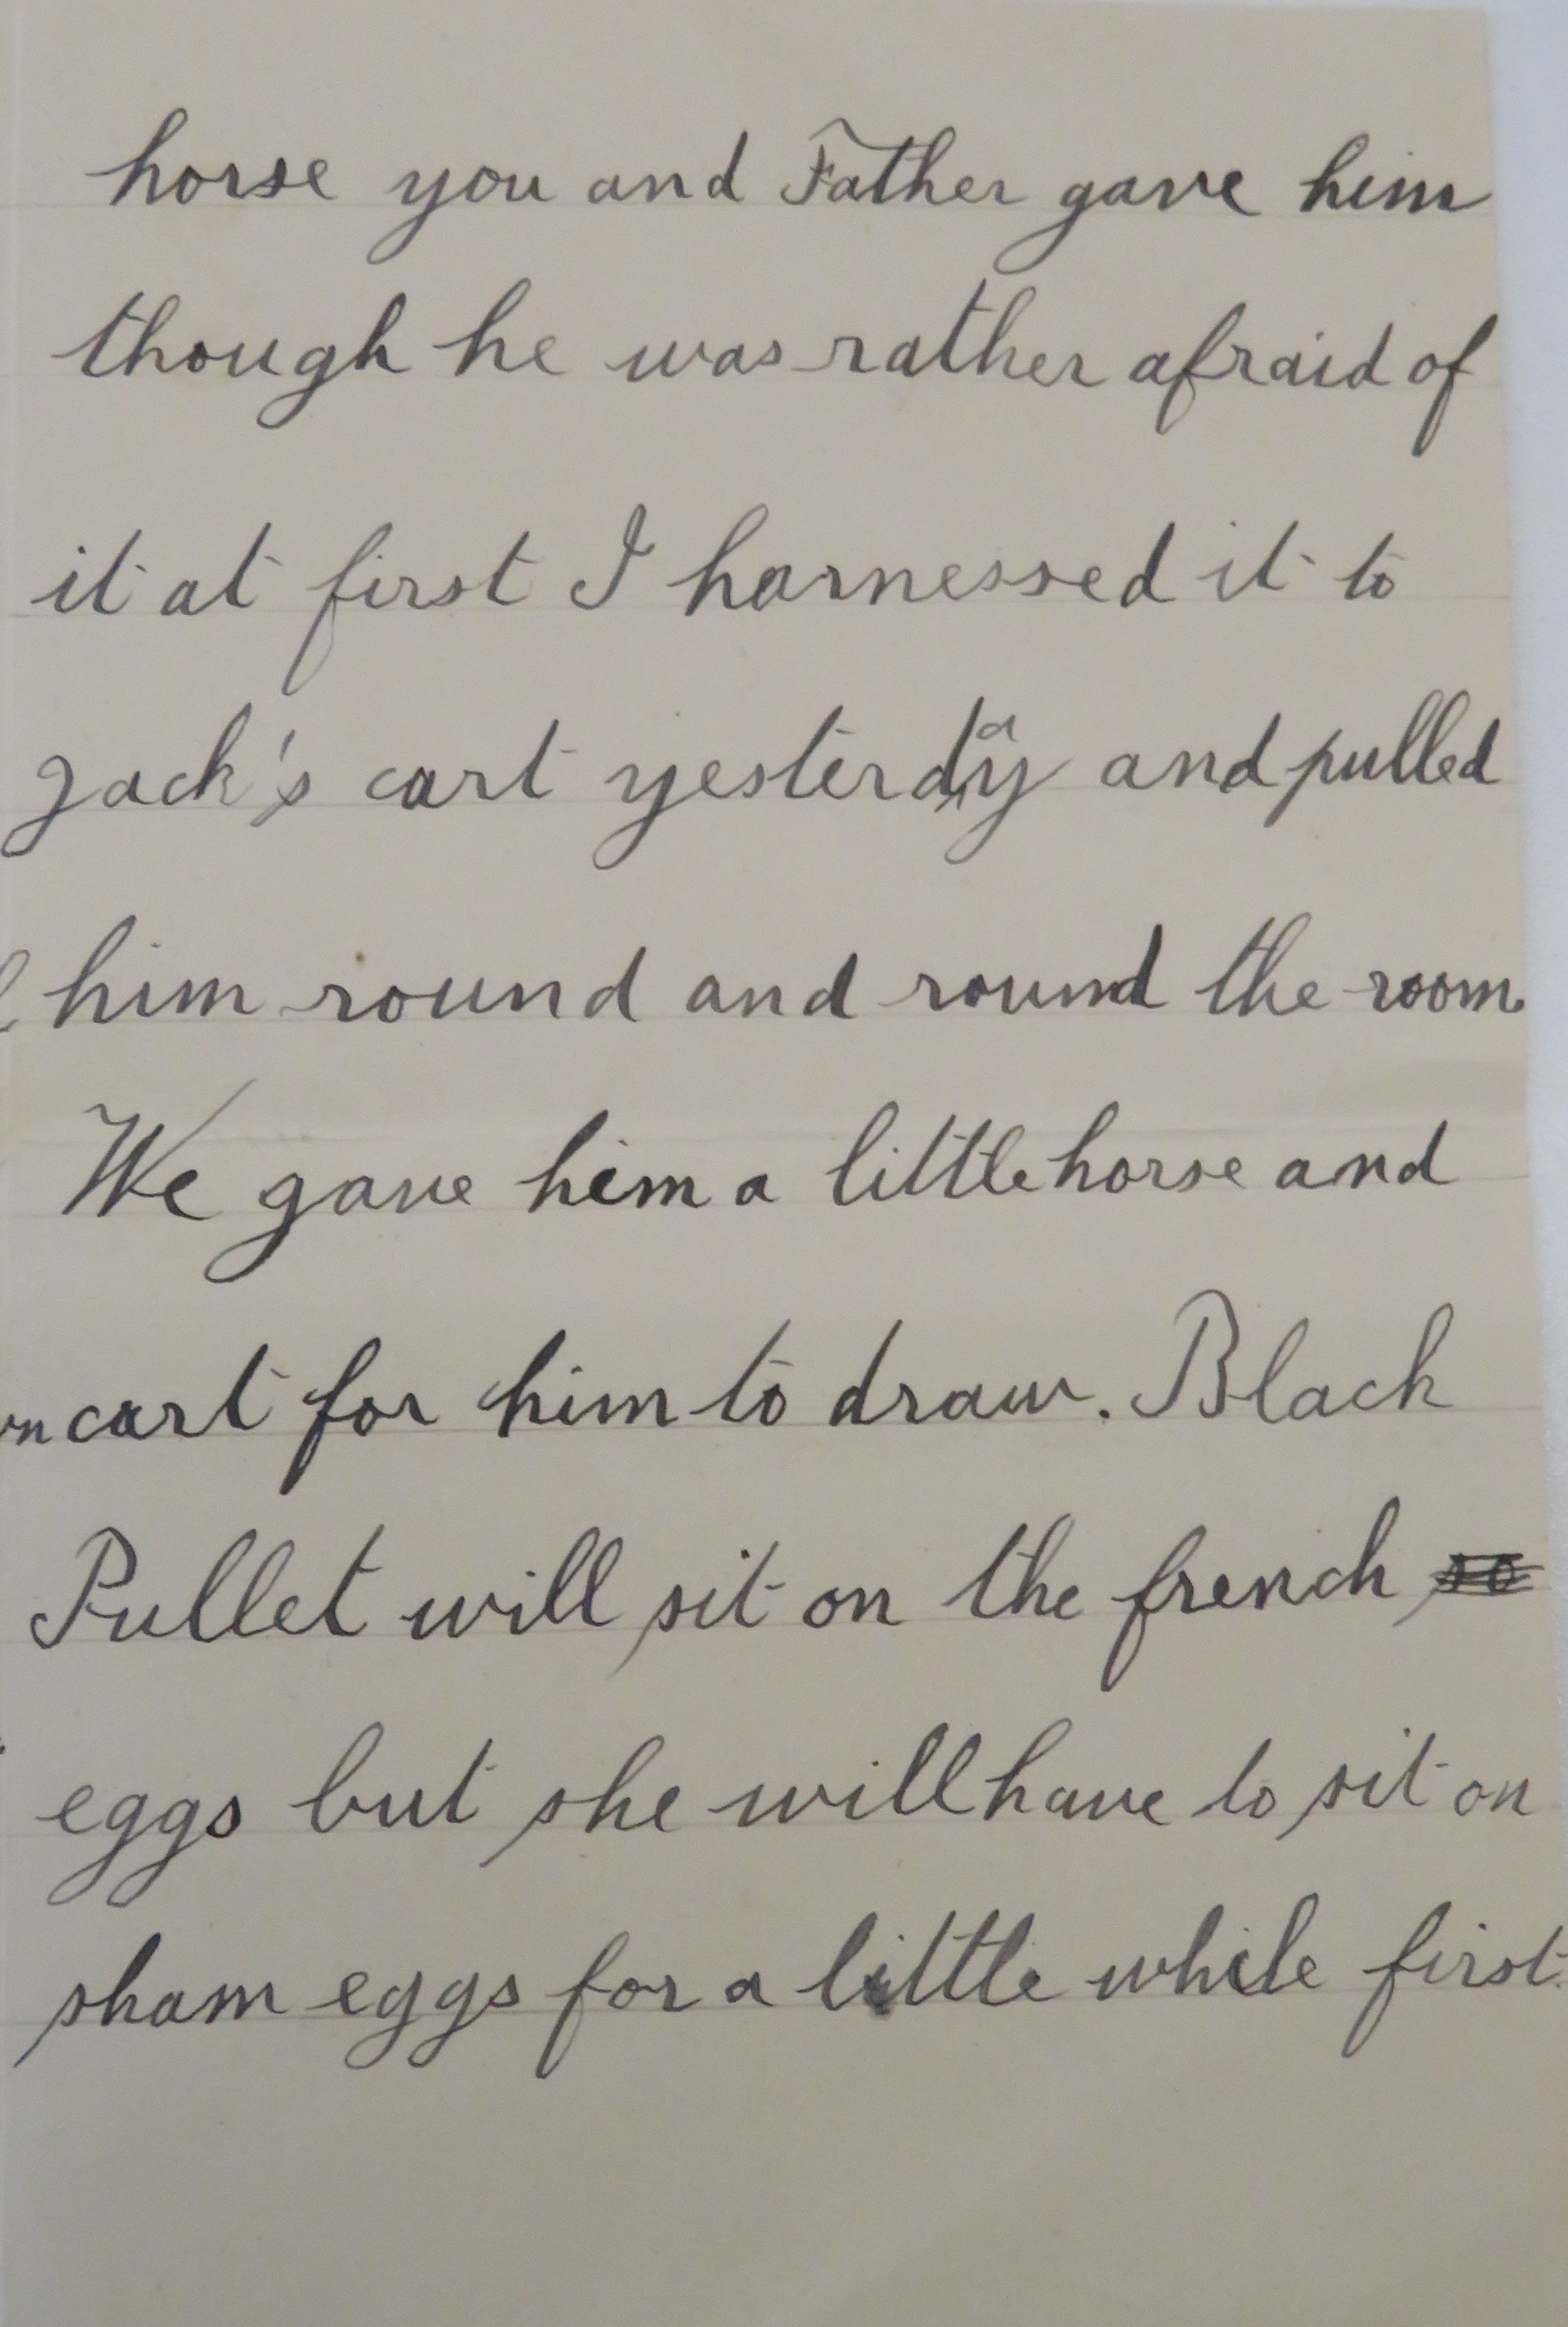 horse you and Father gave him
though he was rather afraid of
it at first I harnessed it to
Jack's cart yesterday and pulled
him round and round the room.
We gave him a little horse and
cart for him to draw. Black
Pullet will sit on the french so
eggs but she will have to sit on
sham eggs for a little while first.